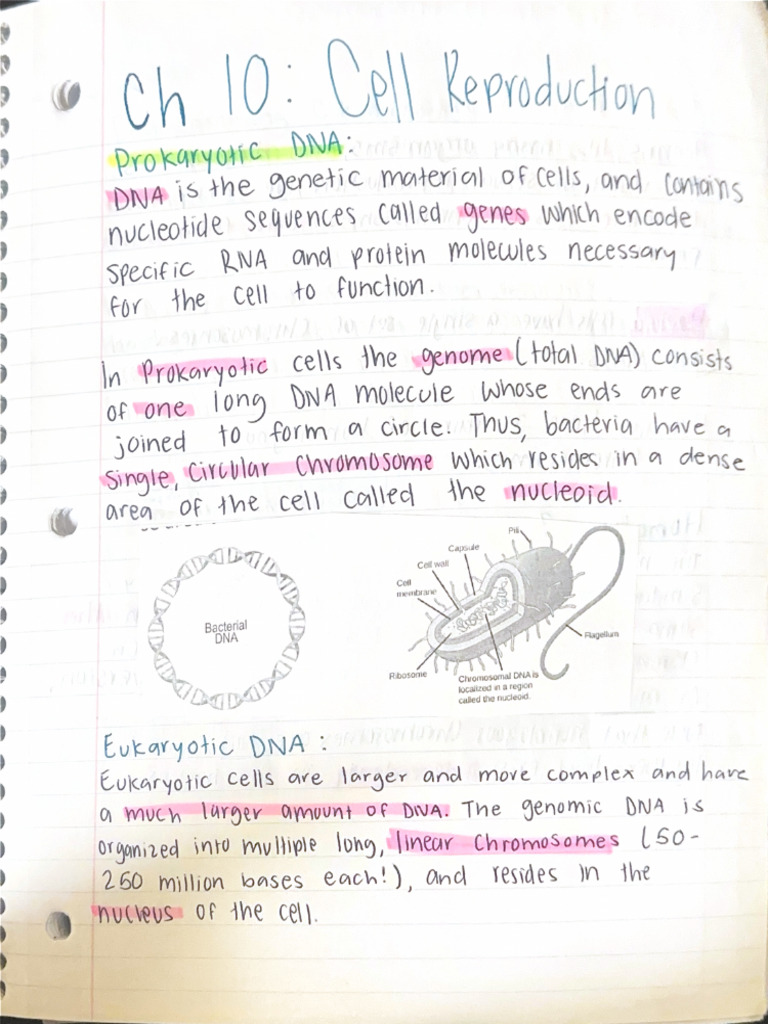 Ch 10: Cell Reproduction
Prokaryotic DNA:
DNA is the genetic material of cells, and contains
nucleotide sequences called genes which encode
specific RNA and protein molecules necessary
for the cell to function.
In Prokaryotic cells the genome (total DNA) consists
of one long DNA molecule whose ends are
joined to form a circle. Thus, bacteria have a
single, circular chromosome which resides in a dense
area of the cell called the nucleoid.
Bacterial
DNA
Pili
Capsule
Cell wall
Cell
membrane
Ribosome
Chromosomal DNA is
localized in a region
called the nucleoid.
Flagellum
Eukaryotic DNA:
Eukaryotic cells are larger and more complex and have
a much larger amount of DNA. The genomic DNA is
organized into multiple long, linear chromosomes (50-
250 million bases each!), and resides in the
nucleus of the cell.